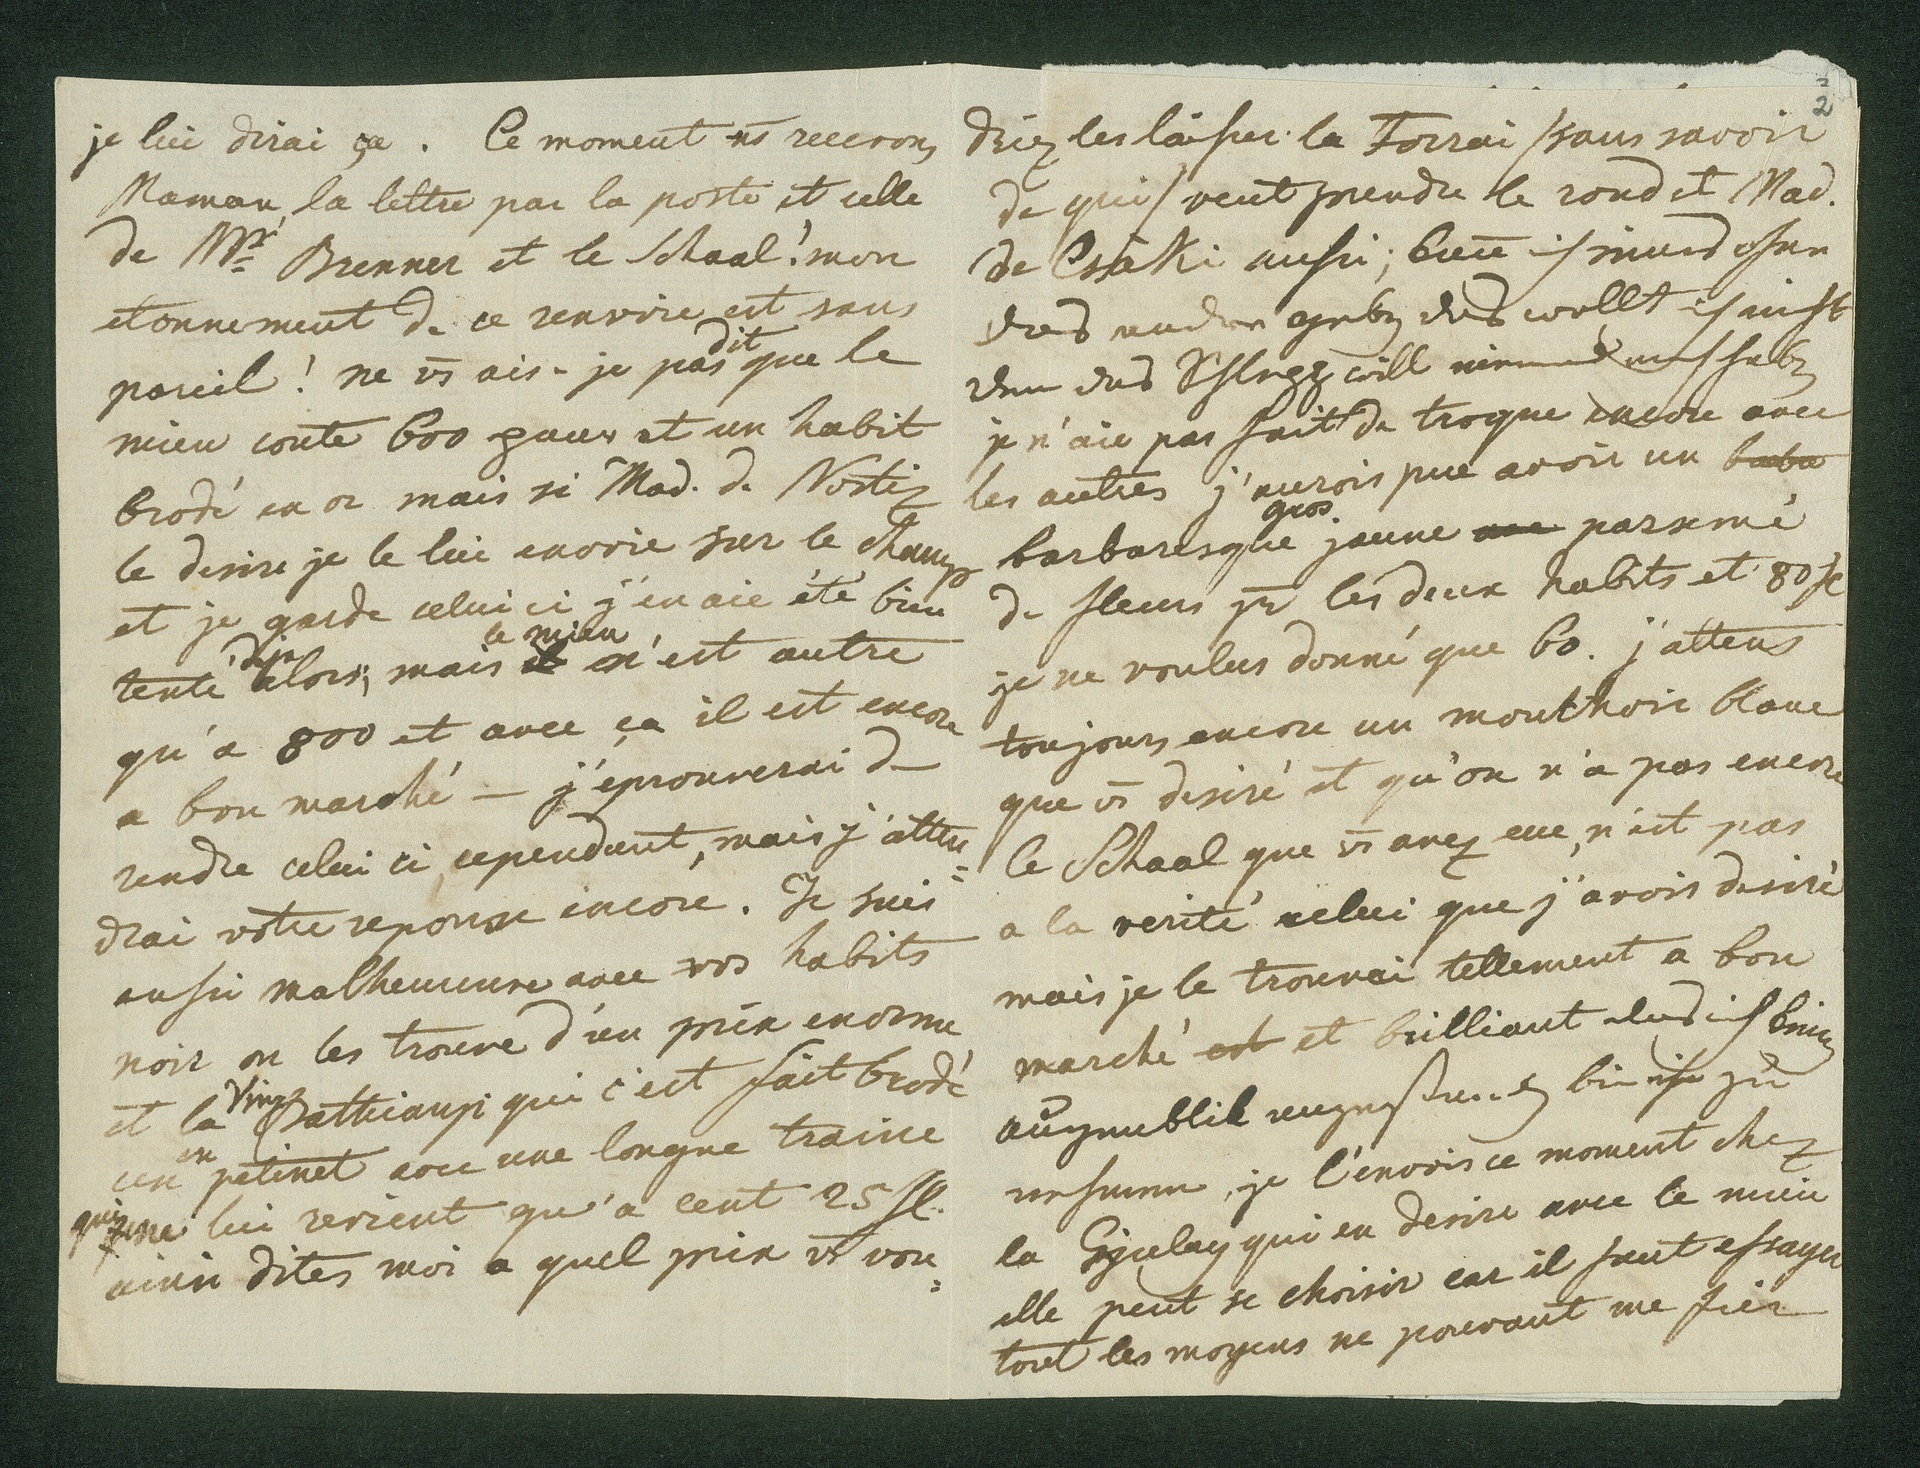 je lui dirai ça. Ce moment ns recevons
Maman, la lettre par la poste et celle
de Mr Brenner et le Schaal! mon
etonnement de ce renvoie est sans
pareil! ne vs ais-je pas dit que le
mien coute 600 et un habit
brodé en or mais si Mad. de Nostiz
le desire je le lui envoie sur le champ
et je garde celui ci j'en aie été bien
tenté deja alors; mais le mien n'est autre
qu'a 800 et avec ça il est encore
a bon marché — j'eprouverai de
rendre celui ci cependant, mais j'atten=
drai votre reponse encore. Je suis
aussi malheureuse avec vos habits
noir on les trouve d'un prix enorme
et la Vinz Batthianyi qui c'est fait brodé
un en petinet avec une longue traine
qui ne lui revient qu'a cent 25 fl.
ainsi dites moi a quel prix vs vou=
2
driez les laisser la Forrai /sans savoir
de qui/ veut prendre le rond et Mad.
de Csáki aussi; ich
das andre geben das wollt ich nicht
denn das will niemand
je n'aie pas fait de troque encore avec
les autres j'aurois pue avoir un
barbaresque gros jaune parsemé
de fleurs pr les deux habits et 80 fl
je ne voulus donné que 60. j'attens
toujours encore un mouchoir blanc
que vs desiré et qu'on n'a pas encore
le Schaal que vs avez eue, n'est pas
a la verité celui que j'avois desiré
mais je le trouvai tellement a bon
marché et brilliant das ich keinen
augenblik bin ihn zu
nehmen, je l'envois ce moment chez
la Gyulay qui en desire avec le mien
elle peut se choisir car il faut essayer
tout les moyens ne pouvant me fier